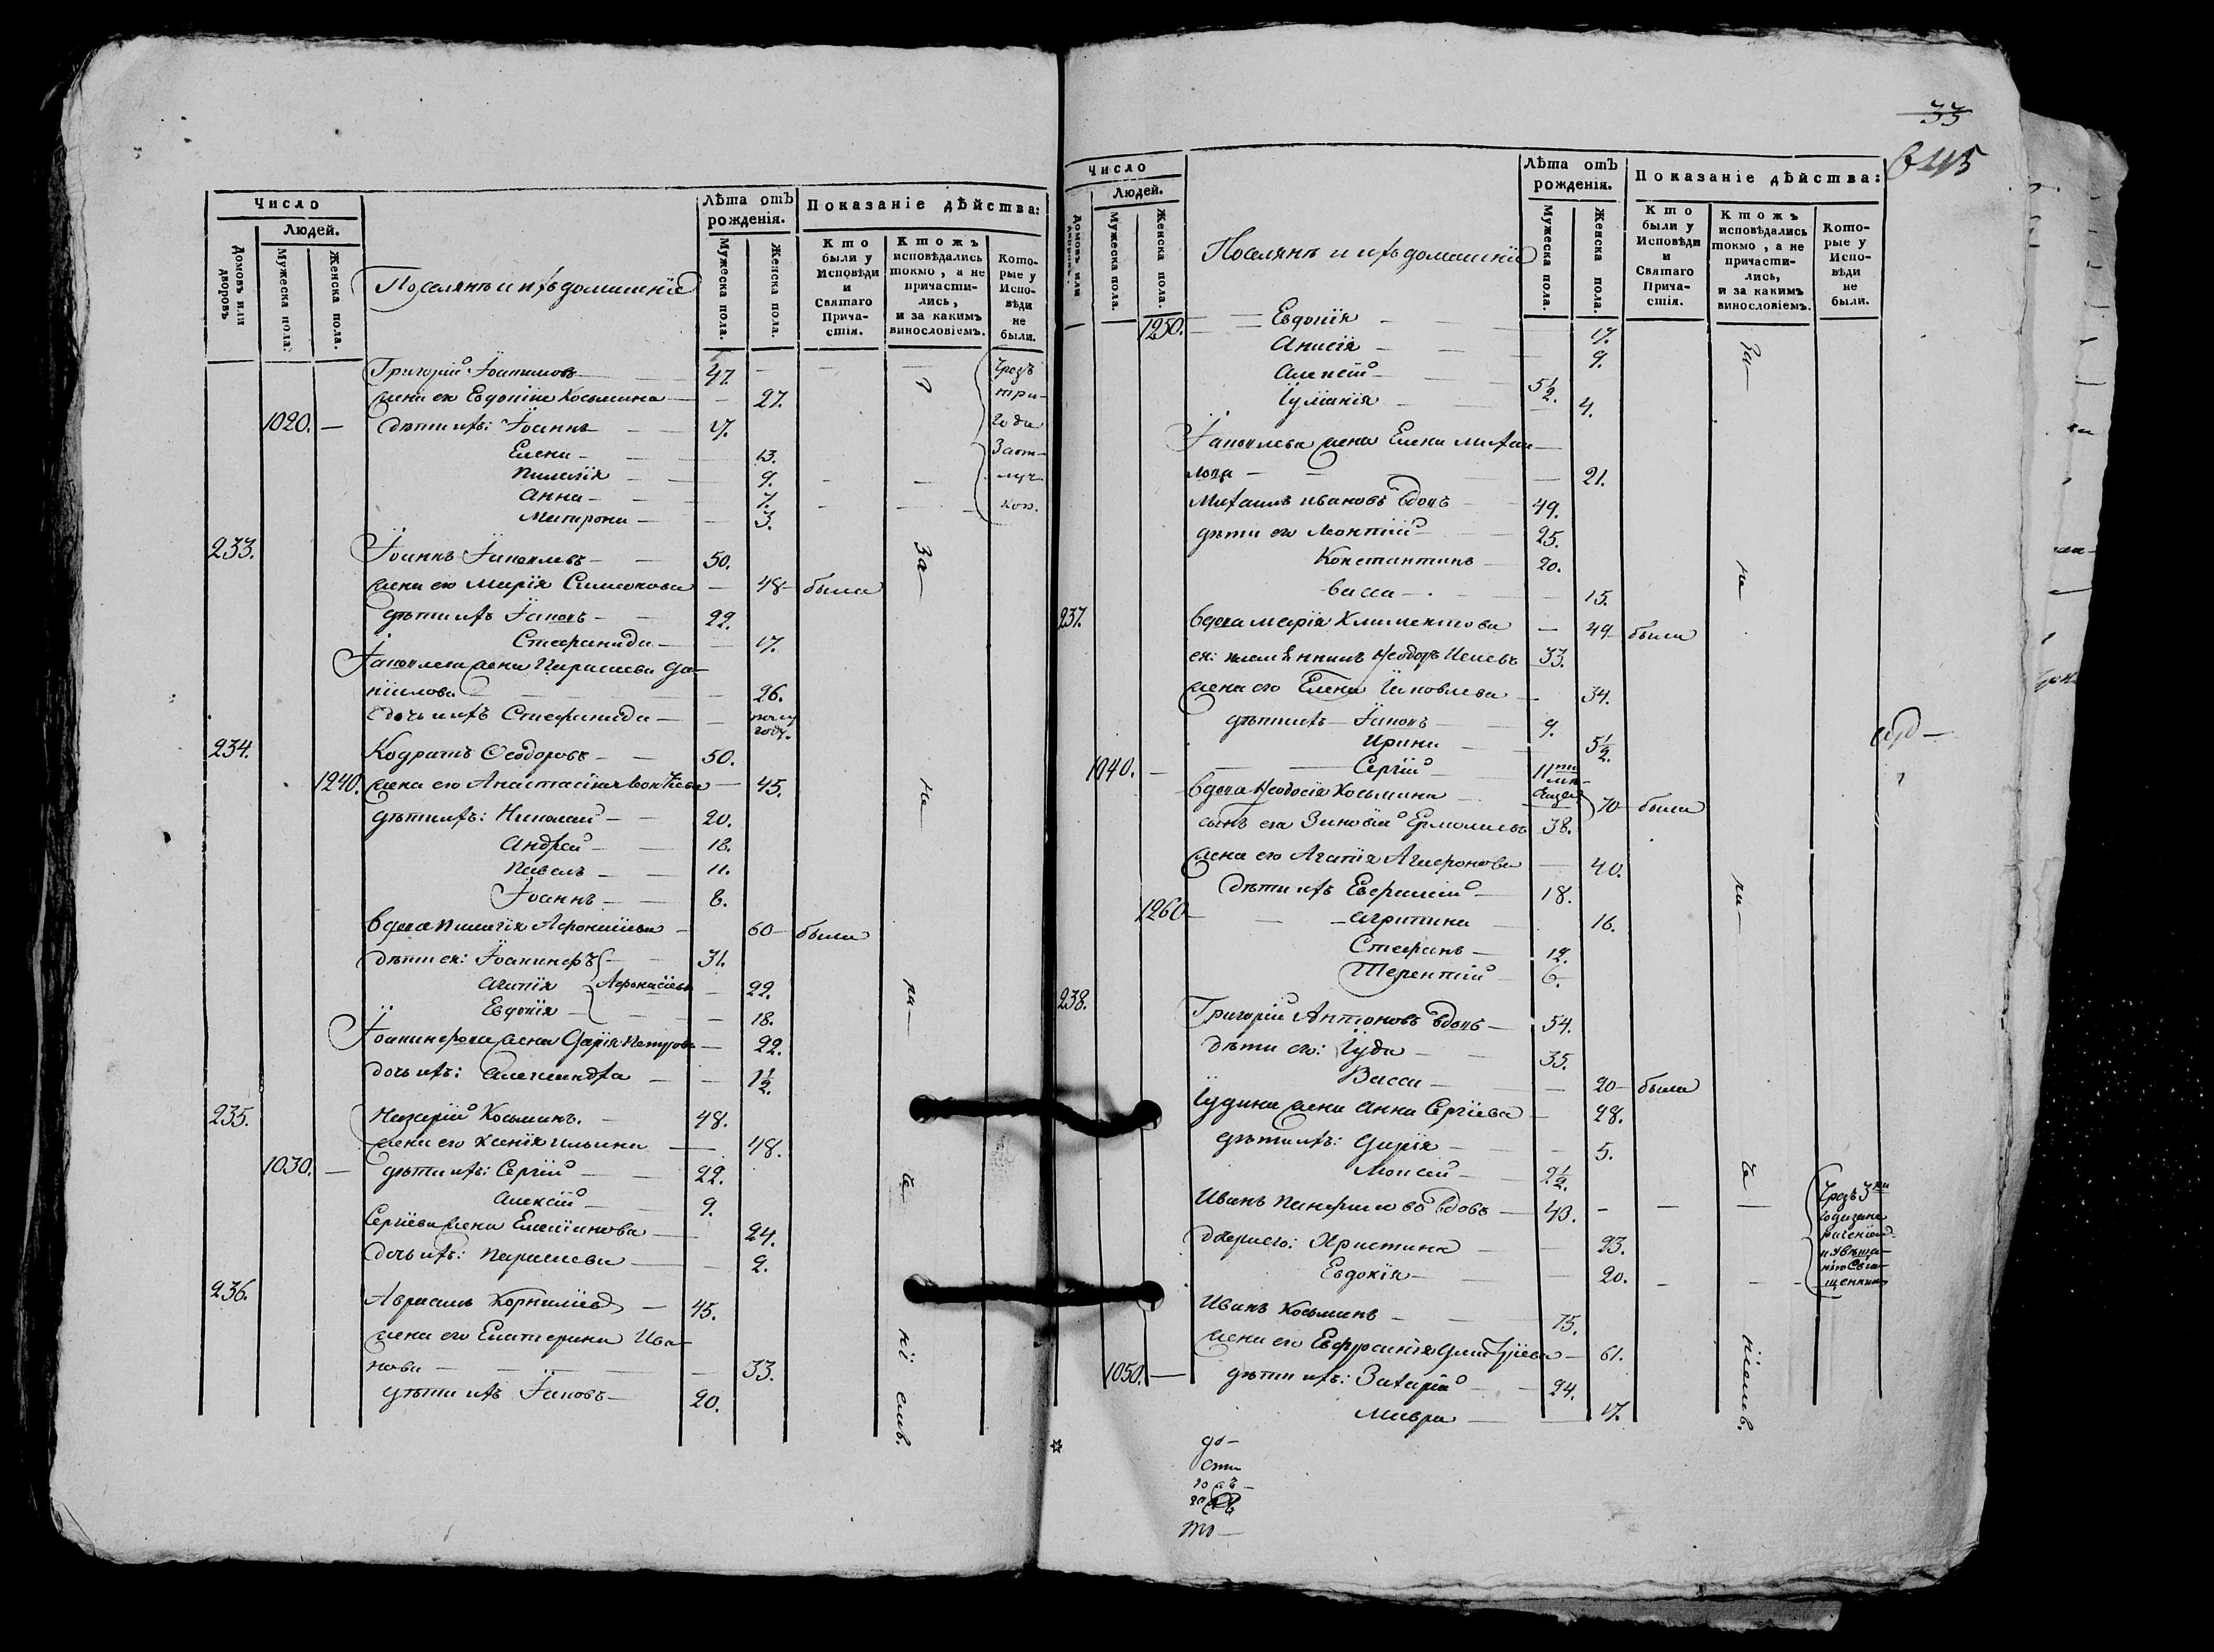 Число
Людей.
Домовъ или дворовъ
Мужеска пола.
Женска пола.
Поселянъ и ихъ домашніе
Лѣта отъ рожденія.
Мужеска пола.
Женска пола.
Показаніе дѣйства:
Кто были у Исповѣди и Святаго Причастія.
Ктожъ исповѣдались токмо, а не причастились, и за какимъ винословіемъ.
Которые у Исповѣди не были.
Григорій 47. Чрезъ
жена его Евдокіа Косьмина 27. три
1020. — дѣти ихъ: Іоаннъ 17. года
Елена 13. За от-
Пелагія 9. луч
Анна 7. кою.
Матрона 3.
233. Іоаннъ Іаковлевъ 50. За
жена его Марія Симеонова 48 была
дѣти ихъ Іаковъ 22.
Стефанида 17.
Іаковлева жена Параскева Да-
ніилова 26.
дочь ихъ Стефанида полу году.
234. Кодратъ Ѳеодоровъ 50.
1240. жена его Анастасіа Леонтіева 45. не
дѣти ихъ: Николай 20.
Андрей 18.
Павелъ 11.
Іоаннъ 8.
вдова Пелагія Афонасіева 60 была
дѣти ея: Іоакинфъ 31.
Агапія Афонасіевы 22. ра
Евдокія 18.
Іоакинфова жена Дарія Петрова 22.
дочь ихъ: Александра 1 1/2
235. Назарій Косьминъ. 48.
жена его Ксенія Ильина 48.
1030. — дѣти ихъ: Сергій 22. че
Алексій 9.
Сергіева жена Емеліанова 24.
дочь ихъ: Параскева 2.
236. Авраамъ Корниліевъ 45.
жена его Екатерина Ива-
нова 33. ні
дѣти ихъ Іаковъ 20. емъ.
33
645
Число
Людей.
Домовъ или дворовъ.
Мужеска пола.
Женска пола.
Поселянъ и ихъ домашніе
Лѣта отъ рожденія.
Мужеска пола.
Женска пола.
Показаніе дѣйства:
Кто были у Исповѣди и Святаго Причастія.
Ктожъ исповѣдались токмо, а не причастились, и за какимъ винословіемъ.
Которые у Исповѣди не были.
1250. Евдокія 17.
Анисія 9. За
Алексій 5 1/2.
Іуліанія 4.
Іаковлева жена Елена Михаи
лова 21.
Михаилъ Ивановъ вдовъ 49.
дѣти его Леонтій 25.
Константинъ 20. не
Васса 15.
237. вдова Марія Климентова 49 была
ея: племянникъ Ѳеодоръ 33.
жена его Елена Іаковлева 34.
дѣти ихъ Іаковъ 9.
Ирина 5 1/2.
1040. — Сергій 11ти
вдова Ѳеодосія Косьмина 70 была
сынъ ея Зиновій Ермолаевъ 38.
жена его Агапія Агафонова 40.
дѣти ихъ Евфимій 18. ра
1260 Агрипина 16.
Стефанъ 12.
Терентій 6.
238. Григорій Антоновъ вдовъ 54.
дѣти его: Іуда 35.
Васса 20 была
Іудина жена Анна Сергіева 28.
дѣти ихъ: Дарія 5. че
Моисей 2 1/2.
Иванъ вдовъ 43. Чрезъ 3 ри
дщери его: Христина 23. года за не
Евдокія 20.
Иванъ Косьминъ 75.
жена его Евфросинія Димитріева 61. ніемъ.
1050. — дѣти ихъ: Захарій 24.
Мавра 17.
то